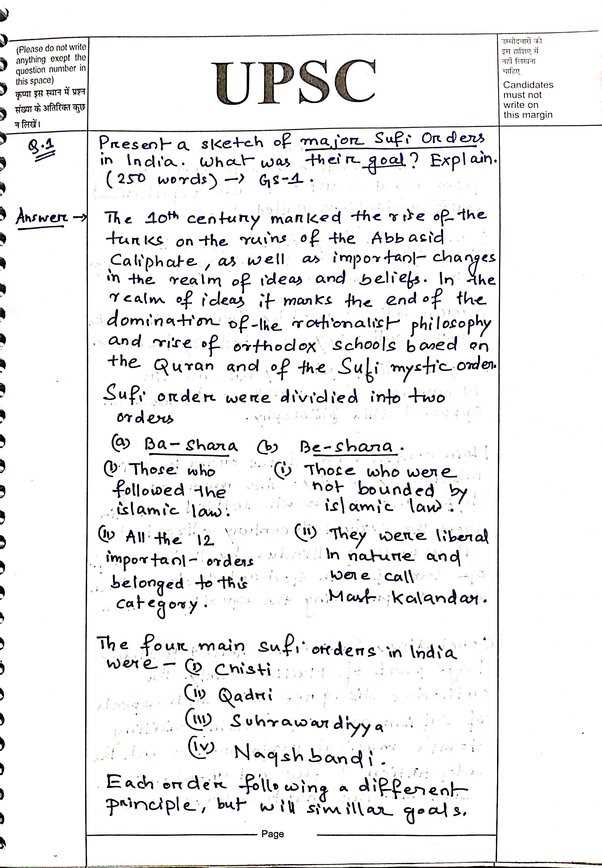 (Please do not write
anything exept the
question number in
this space)
कृपया इस स्थान में प्रश्न
संख्या के अतिरिक्त कुछ
न लिखें।
UPSC
उम्मीदवारों को
इस हाशिए में
नहीं लिखना
चाहिए
Candidates
must not
write on
this margin
Q.1
Present a sketch of major Sufi Orders
in India. What was their goal? Explain.
(250 words) → GS-1.
Answer →
The 10th century marked the rise of the
turks on the ruins of the Abbasid
Caliphate, as well as important changes
in the realm of ideas and beliefs. In the
realm of ideas it marks the end of the
domination of the rationalist philosophy
and rise of orthodox schools based on
the Quran and of the Sufi mystic order.
Sufi order were dividied into two
orders
(a) Ba-shara (b) Be-shara.
(i) Those who
followed the
islamic law.
(ii) All the 12
important orders
belonged to this
category.
(i) Those who were
not bounded by
islamic law.
(ii) They were liberal
In nature and
were call
Mast Kalandar.
The four main sufi orders in India
were - (i) Chisti
(ii) Qadri
(iii) Suhrawardiyya
(iv) Naqshbandi.
Each order following a different
principle, but will simillar goals.
Page